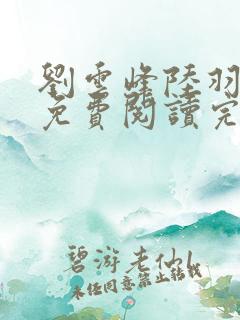 劉雲峰陸羽
免費閱讀完
碧游老仙
未經同意禁止轉載